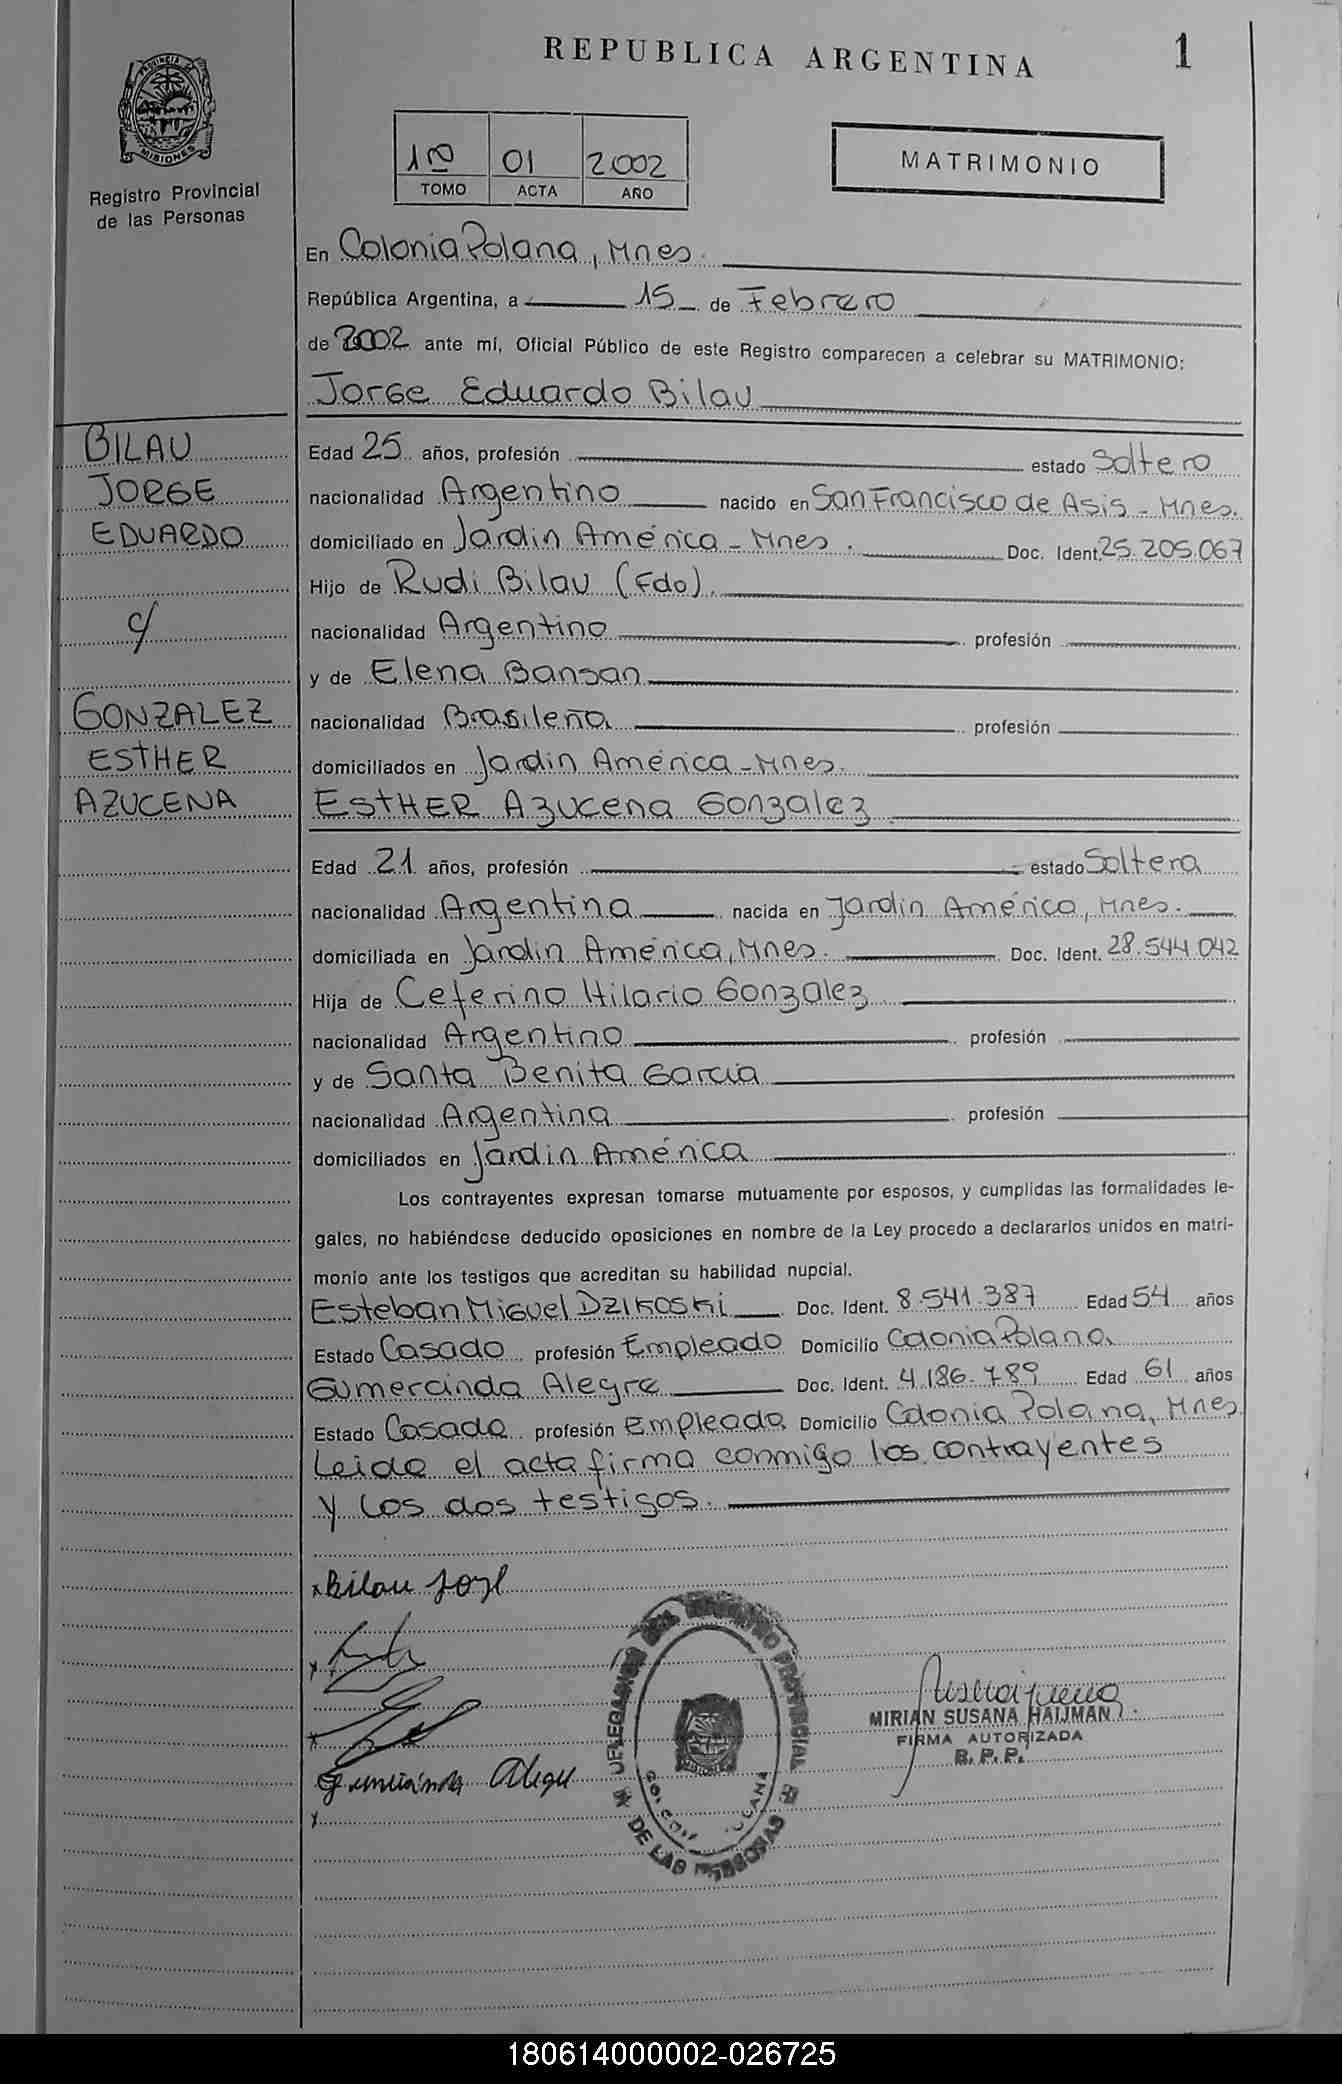 REPUBLICA ARGENTINA
1
PROVINCIA DE
MISIONES
Registro Provincial
de las Personas
1º 01 2002
TOMO ACTA AÑO
MATRIMONIO
En Colonia Polana, Mnes.
República Argentina, a 15 de Febrero
de 2002 ante mí, Oficial Público de este Registro comparecen a celebrar su MATRIMONIO:
Jorge Eduardo Bilau
BILAU
JORGE
EDUARDO
c/
GONZALEZ
ESTHER
AZUCENA
Edad 25 años, profesión estado Soltero
nacionalidad Argentino nacido en San Francisco de Asis - Mnes.
domiciliado en Jardin América - Mnes. Doc. Ident. 25.205.067
Hijo de Rudi Bilau (Fdo).
nacionalidad Argentino profesión
y de Elena Bansan
nacionalidad Brasileña profesión
domiciliados en Jardin América - Mnes.
ESTHER Azucena Gonzalez
Edad 21 años, profesión estado Soltera
nacionalidad Argentina nacida en Jardin América, Mnes.
domiciliada en Jardin América, Mnes. Doc. Ident. 28.544.042
Hija de Ceferino Hilario Gonzalez
nacionalidad Argentino profesión
y de Santa Benita Garcia
nacionalidad Argentina profesión
domiciliados en Jardin América
Los contrayentes expresan tomarse mutuamente por esposos, y cumplidas las formalidades le-
gales, no habiéndose deducido oposiciones en nombre de la Ley procedo a declararlos unidos en matri-
monio ante los testigos que acreditan su habilidad nupcial.
Esteban Miguel Dzikoski Doc. Ident. 8.541.387 Edad 54 años
Estado Casado profesión Empleado Domicilio Colonia Polana
Gumercinda Alegre Doc. Ident. 4.186.789 Edad 61 años
Estado Casada profesión Empleada Domicilio Colonia Polana, Mnes
Leida el acta firma conmigo los contrayentes
y los dos testigos.
x Bilau Jorge
x
x
Gumercinda Alegre
x
DELEGACION DEL REGISTRO PROVINCIAL
DE LAS PERSONAS
MISIONES
MIRIAN SUSANA HAIJMAN
FIRMA AUTORIZADA
R. P. P.
180614000002-026725